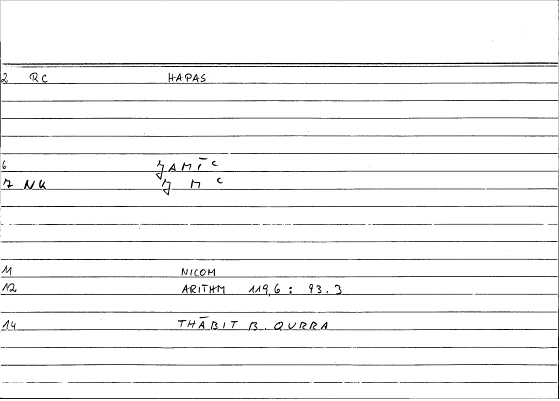 2 RC HAPAS
6 ǦAMĪʿ
7 NK Ǧ M ʿ
11 NICOM
12 ARITHM 119,6 : 93.3
14 THĀBIT B. QURRA